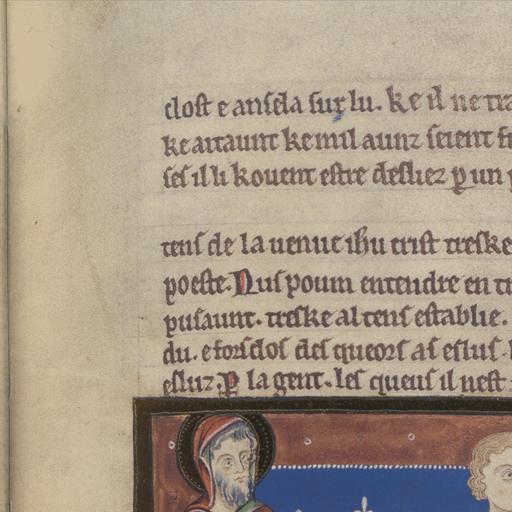 clost e ansela sur lu. ke il ne tra
ke ataunt ke mil aunz seient fi
ses il li kouent estre desliez p un p
tens de la uenue ihu crist treske
poeste. Nus poum entendre en t
pusaunt. treske al tens establie.
du. e forsclos des queors as eslus.
esluz. P la gent. les queus il nest